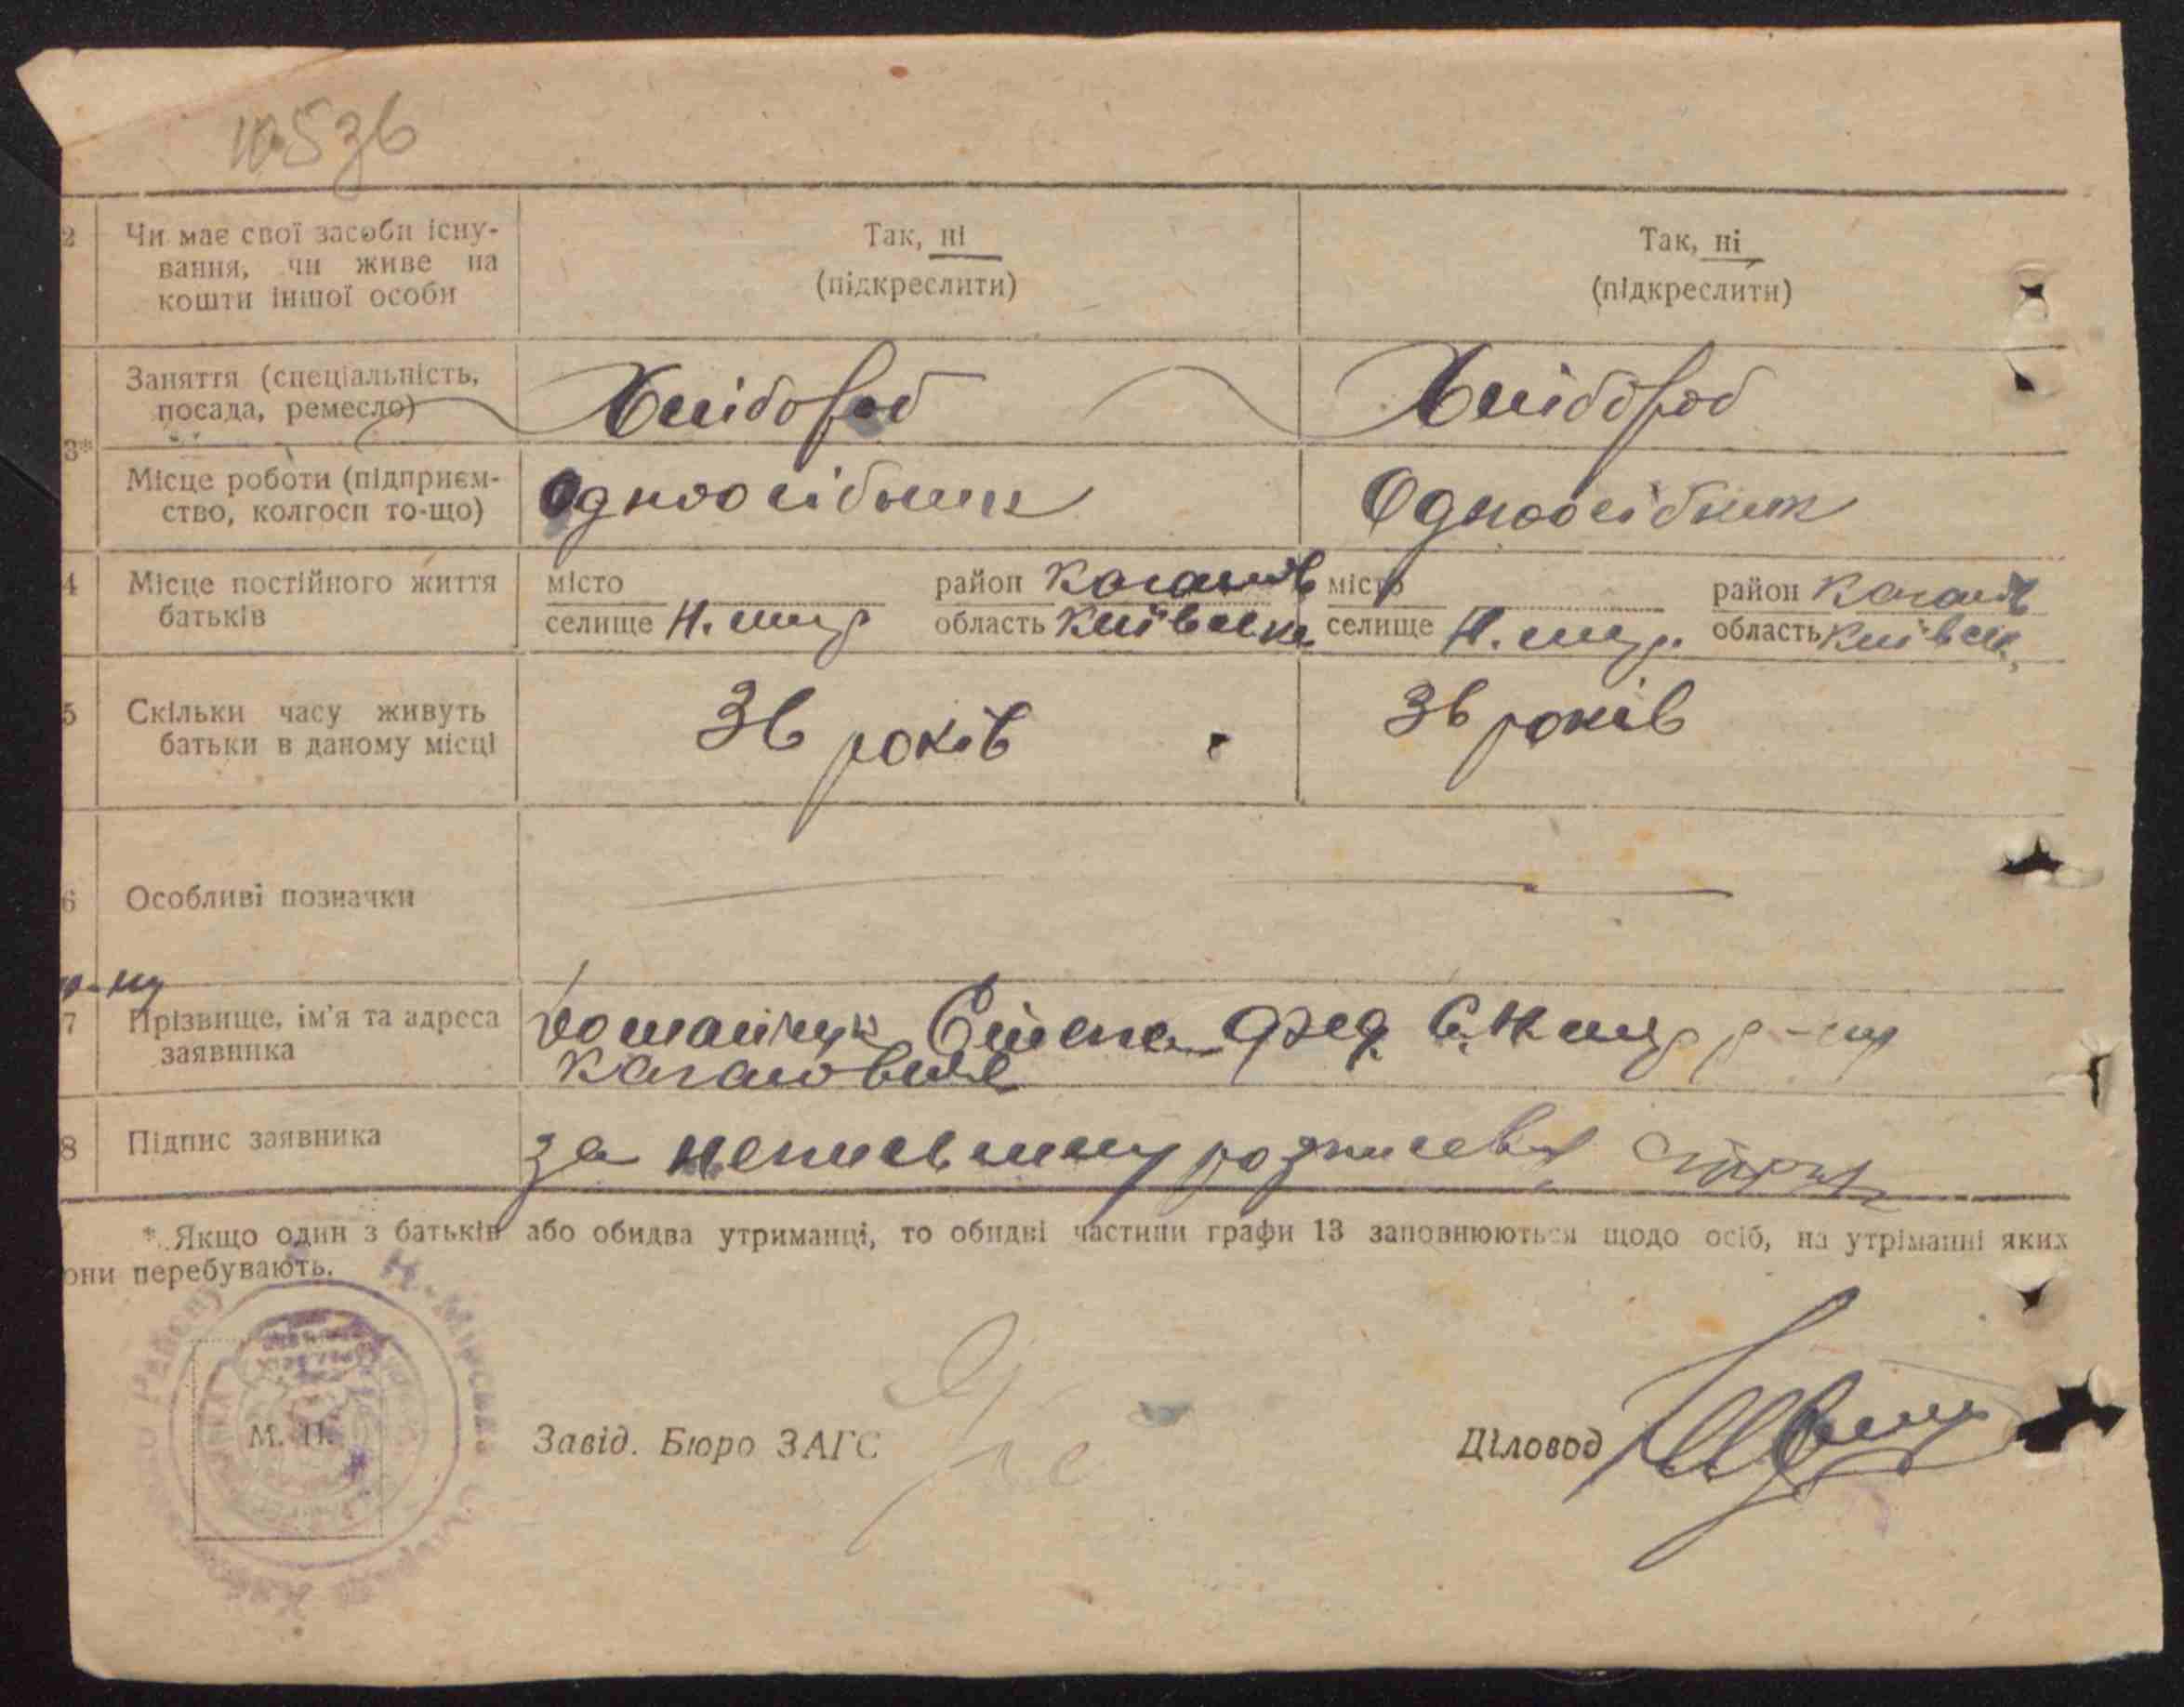 10536
2 Чи має свої засоби існу-
вання, чи живе на
кошти іншої особи
Так, ні
(підкреслити)
Так, ні
(підкреслити)
3*
Заняття (спеціальність,
посада, ремесло)
Хлібороб
Хлібороб
Місце роботи (підприєм-
ство, колгосп то-що)
Одноосібник
Одноосібник
4 Місце постійного життя
батьків
місто
селище Н. Мир
район Каганов
область Київськ
місто
селище Н. Мир.
район Каганов
область Київськ.
5 Скільки часу живуть
батьки в даному місці
36 років
36 років
6 Особливі позначки
7 Прізвище, ім'я та адреса
заявника
Домашчук Єшена Фед. С. Н Мир р-ну
Кагановичя
8 Підпис заявника
за неписьмену розписавсь
* Якщо один з батьків або обидва утриманці, то обидві частини графи 13 заповнюються щодо осіб, на утріманні яких
они перебувають.
М. П.
Завід. Бюро ЗАГС
Діловод